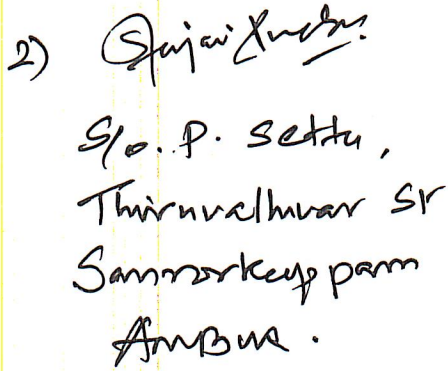 2)
S/o. P. Settu,
Thiruvalluvar St
Sannorkuppam
AmBur.